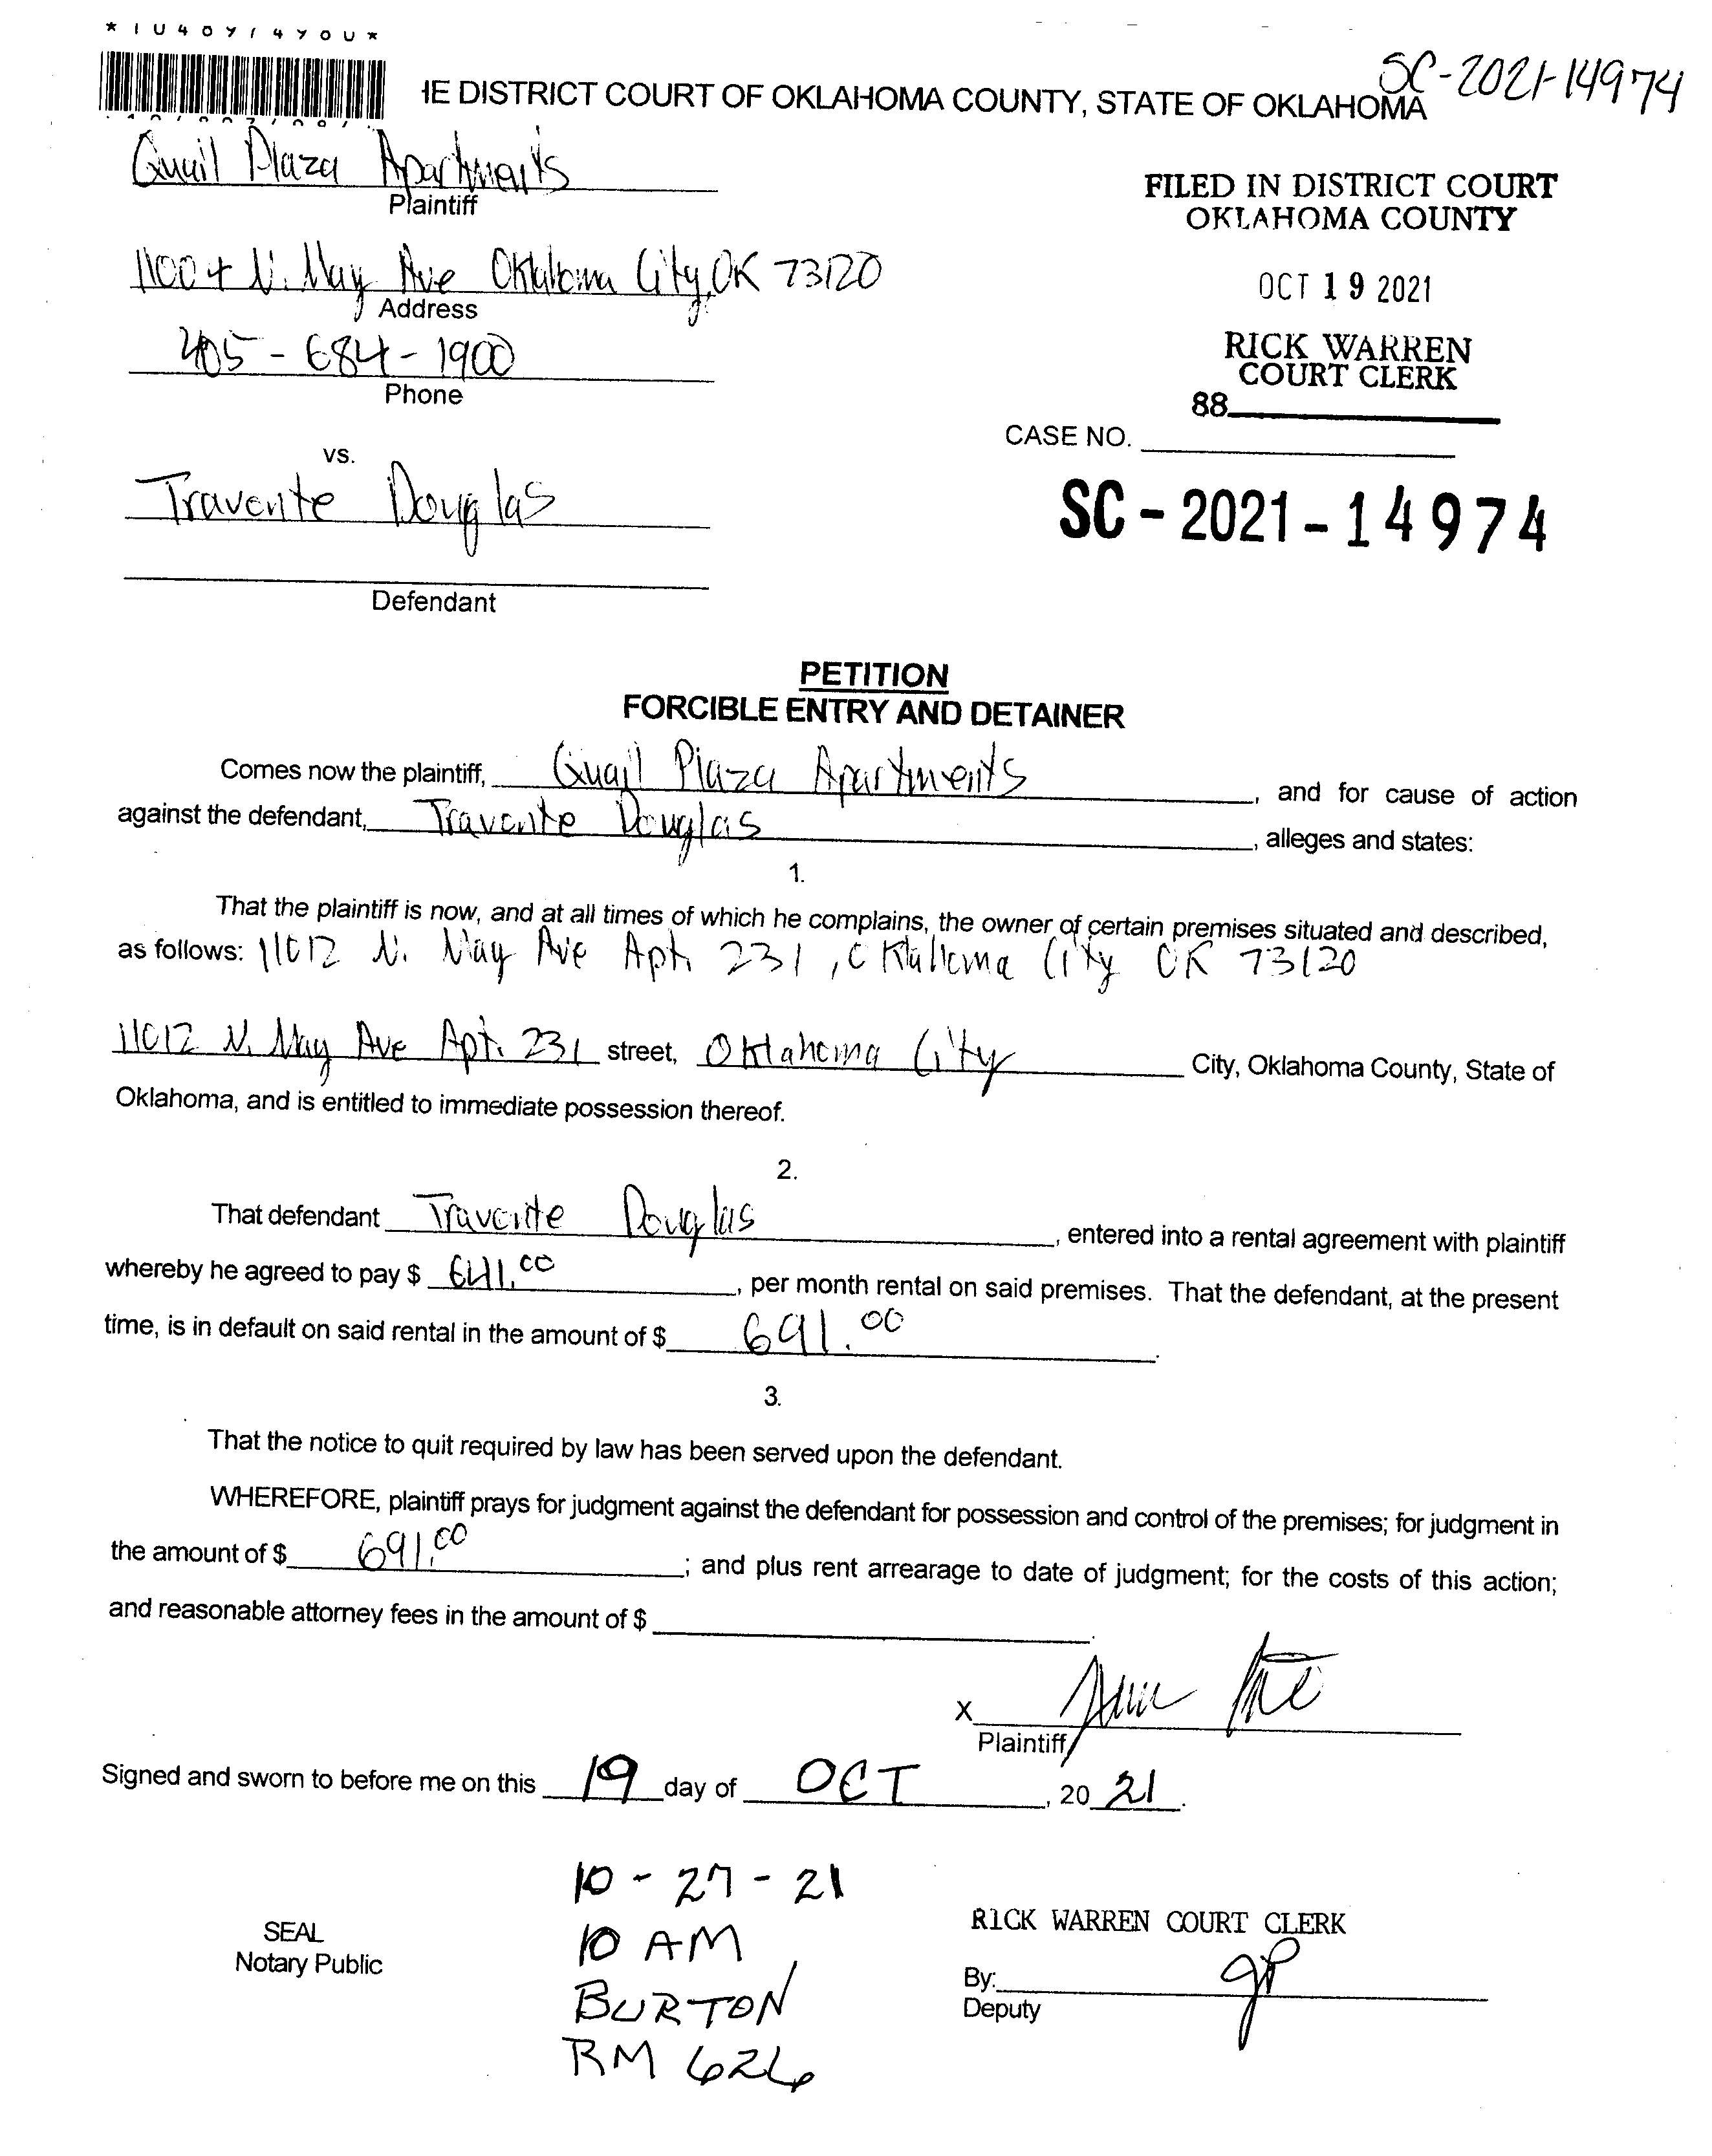 SC-2021-14974
IE DISTRICT COURT OF OKLAHOMA COUNTY, STATE OF OKLAHOMA
Quail Plaza Apartments
Plaintiff
FILED IN DISTRICT COURT
OKLAHOMA COUNTY
N. May Ave Oklahoma City, OK 73120
Address
OCT 19 2021
405-684-1900
Phone
RICK WARREN
COURT CLERK
88
CASE NO.
vs.
Travonte Douglas
SC-2021-14974
Defendant
PETITION
FORCIBLE ENTRY AND DETAINER
Comes now the plaintiff, Quail Plaza Apartments, and for cause of action
against the defendant, Travonte Douglas, alleges and states:
1.
That the plaintiff is now, and at all times of which he complains, the owner of certain premises situated and described,
as follows: 11012 N. May Ave Apt. 231, Oklahoma City OK 73120
11012 N. May Ave Apt. 231 street, Oklahoma City City, Oklahoma County, State of
Oklahoma, and is entitled to immediate possession thereof.
2.
That defendant Travonte Douglas, entered into a rental agreement with plaintiff
whereby he agreed to pay $ 641.00, per month rental on said premises. That the defendant, at the present
time, is in default on said rental in the amount of $ 691.00.
3.
That the notice to quit required by law has been served upon the defendant.
WHEREFORE, plaintiff prays for judgment against the defendant for possession and control of the premises; for judgment in
the amount of $ 691.00; and plus rent arrearage to date of judgment; for the costs of this action;
and reasonable attorney fees in the amount of $ .
X
Plaintiff
Signed and sworn to before me on this 19 day of OCT, 20 21.
10-27-21
10 AM
BURTON
RM 626
SEAL
Notary Public
RICK WARREN COURT CLERK
By: JP
Deputy